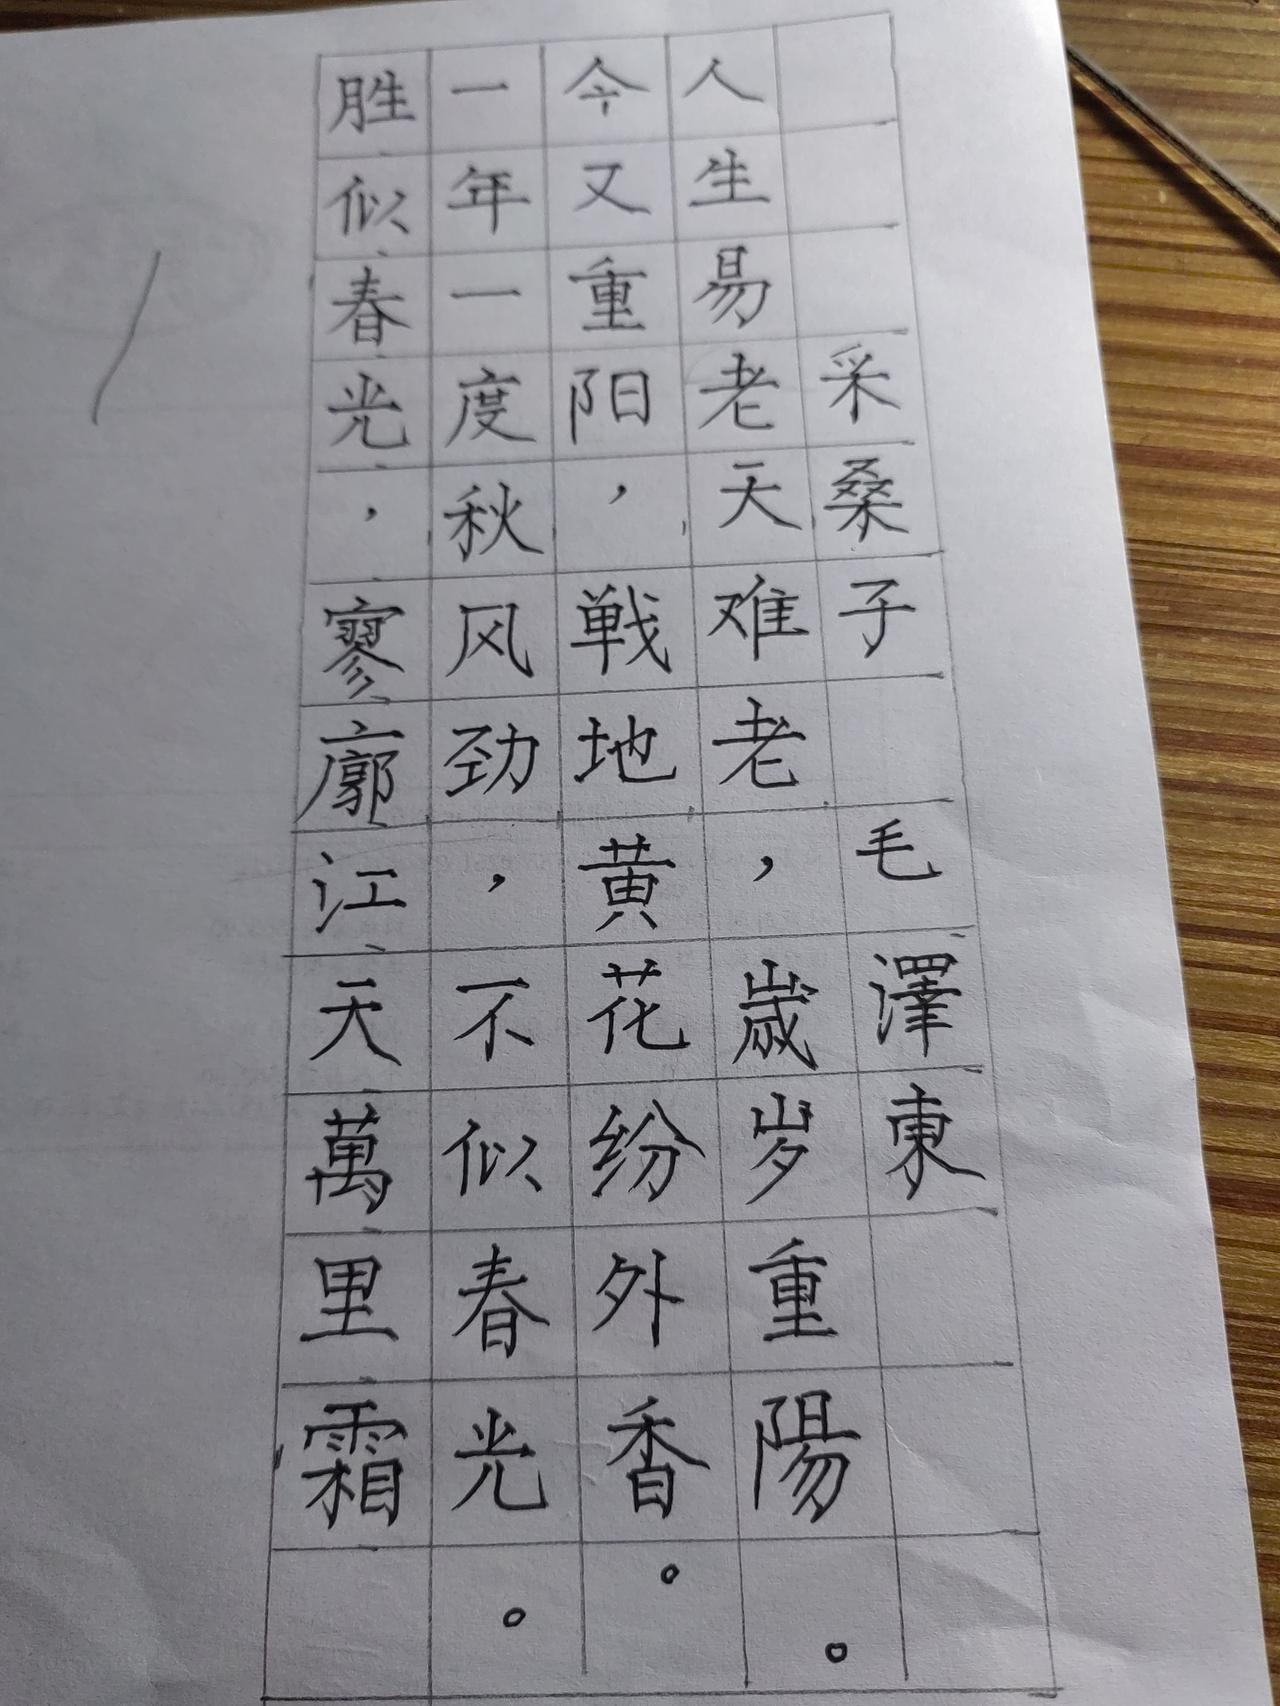 采桑子 毛澤東
人生易老天难老，歲岁重陽。
今又重阳，戦地黄花纷外香。
一年一度秋风劲，不似春光。
胜似春光，寥廓江天萬里霜